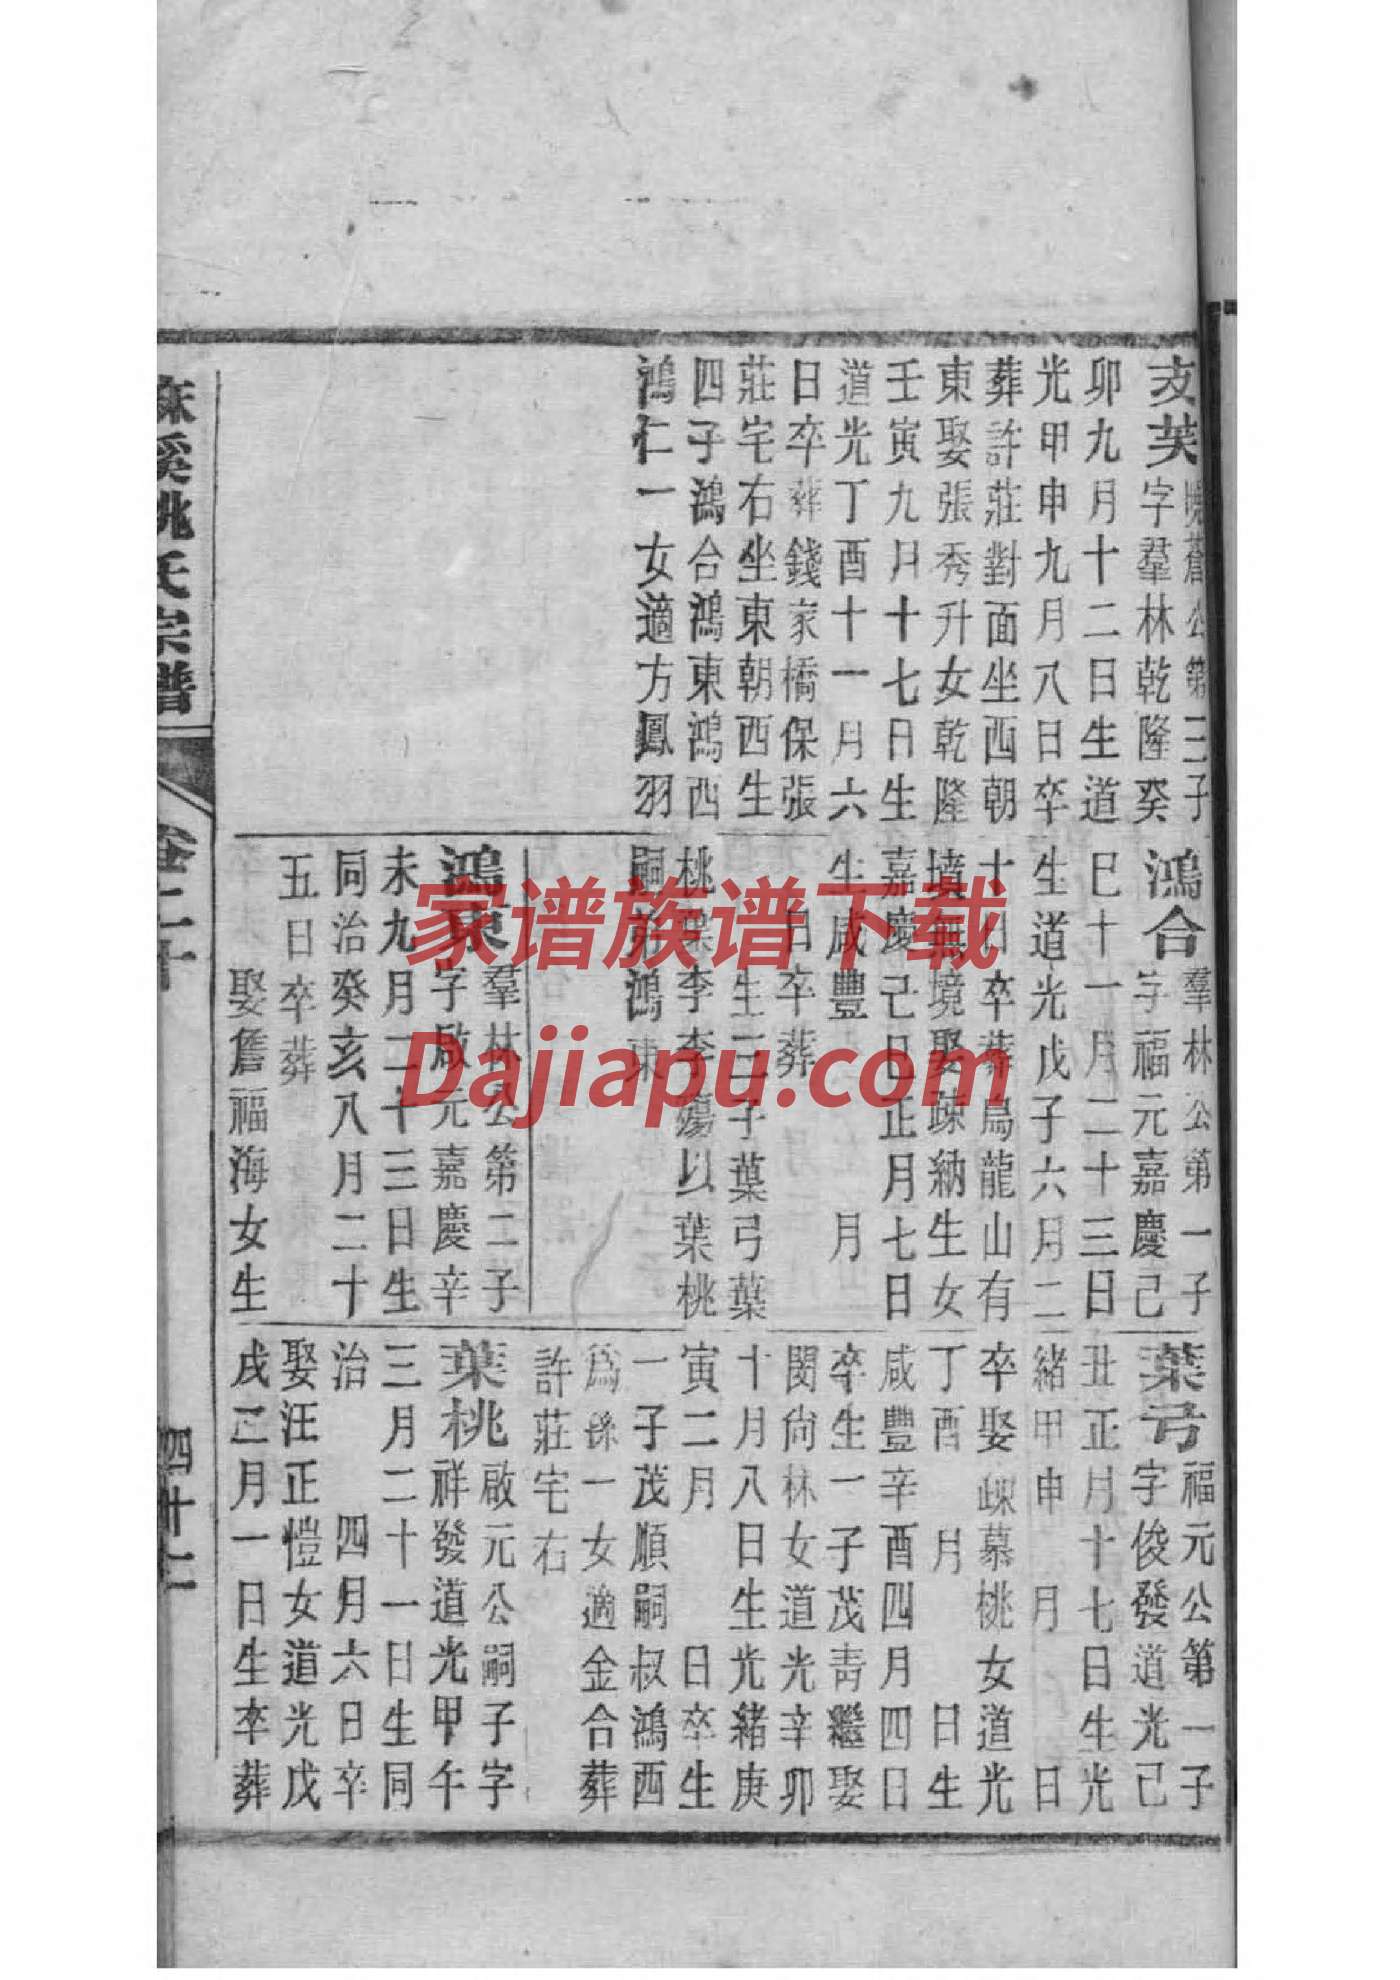 支芙
曉蒼公第三子
字羣林乾隆癸
卯九月十二日生道
光甲申九月八日卒
葬許莊對面坐西朝
東娶張秀升女乾隆
壬寅九月十七日生
道光丁酉十一月六
日卒葬錢家橋保張
莊宅右坐東朝西生
四子鴻合鴻東鴻西
鴻仁一女適方鳳羽
鴻合
羣林公第一子
字福元嘉慶己
巳十一月二十三日
生道光戊子六月二
十日卒葬烏龍山有
墳無境娶疎納生女
嘉慶己巳正月七日
生咸豐 月
日卒葬
生二子葉弓葉
桃 李李殤以葉桃
嗣弟鴻東
鴻東
羣林公第二子
字啟元嘉慶辛
未九月二十三日生
同治癸亥八月二十
五日卒葬
娶詹福海女生
葉弓
福元公第一子
字俊發道光己
丑正月十七日生光
緒甲申 月 日
卒娶疎慕桃女道光
丁酉 月 日生
咸豐辛酉四月四日
卒生一子茂靑繼娶
閔尙林女道光辛卯
十月八日生光緒庚
寅二月 日卒生
一子茂順嗣叔鴻西
爲孫一女適金合葬
許莊宅右
葉桃
啟元公嗣子字
祥發道光甲午
三月二十一日生同
治 四月六日卒
娶汪正愷女道光戊
戌二月一日生卒葬
麻溪姚氏宗譜
卷二十
四十七
家谱族谱下载
Dajiapu.com